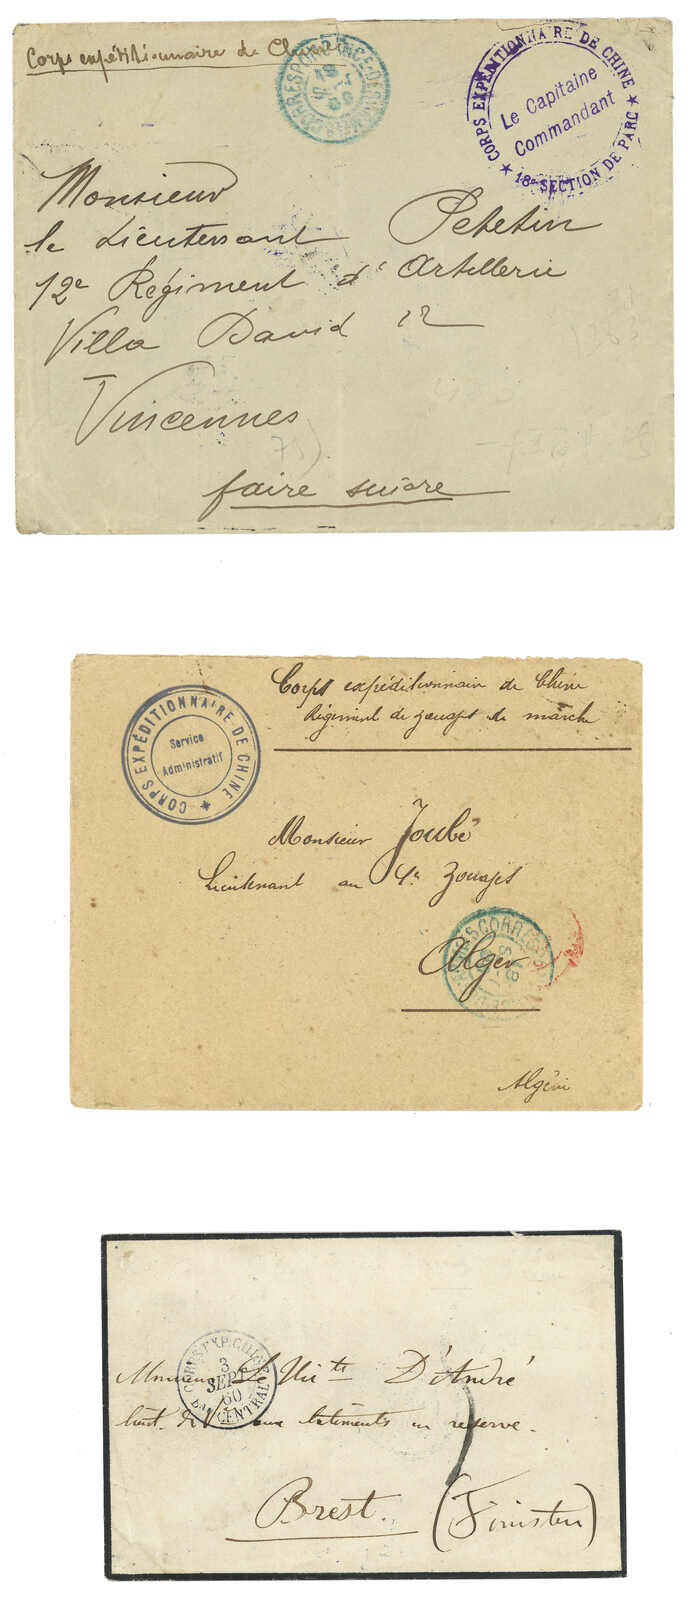 Corps expéditionnaire de Chine
CORRESPONDANCE
CORPS EXPÉDITIONNAIRE DE CHINE
Le Capitaine
Commandant
★ 18e SECTION DE PARC ★
Monsieur
le Lieutenant Petetin
12e Régiment d'Artillerie
Villa David 12
Vincennes
faire suivre
Corps expéditionnair de Chine
Régiment de zouaves de marche
CORPS EXPÉDITIONNAIRE DE CHINE ★
Service
Administratif
Monsieur Joubé
Lieutenant au 4e Zouaves
Alger
Algérie
CORPS EXP. CHINE
3
SEPT
60
BAU CENTRAL
Monsieur Le Victe D'André
lieut. de Vau aux bâtiments en reserve.
Brest. (Finistere)